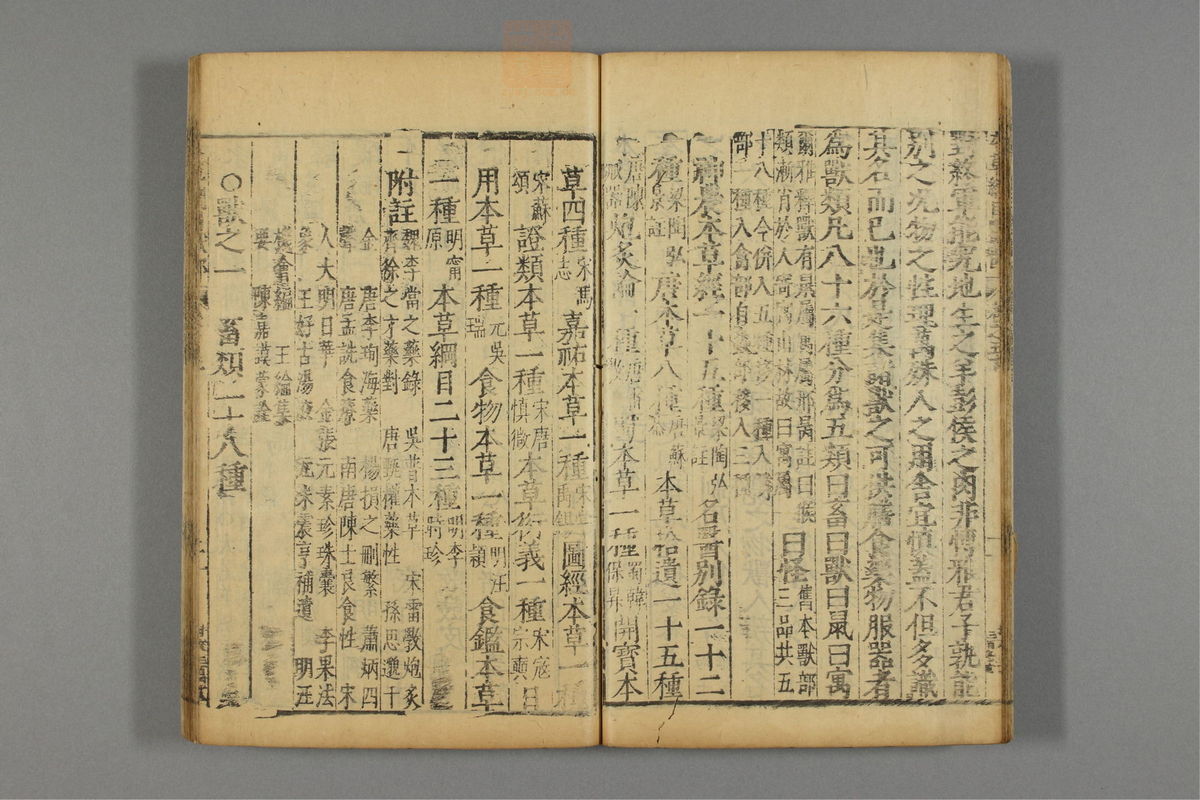 對終軍能究地生之羊彭侯之肉非博雅君子孰能
別之況物之性理萬殊人之用舍宜慎蓋不但多識
其名而已也於是集諸獸之可供膳食藥物服器者
為獸類凡八十六種分為五類曰畜曰獸曰鼠曰寓
爾雅釋獸有鼠屬寓屬邢昺註曰猴
類漸肖於人寄寓山林故曰寓屬
曰怪
舊本獸部三品共五
十八種今併入五種移一種入
部一種入禽部自蟲部移入三種
神農本草經一十五種梁陶弘景註
名醫別錄一十二
種梁陶弘景註
唐本草八種唐蘇恭
本草拾遺一十五種
唐陳藏器
炮炙論一種
蜀本草一種蜀韓保昇
開寶本
草四種宋馬志
嘉祐本草一種宋掌禹錫
圖經本草一種
宋蘇頌
證類本草一種宋唐慎微
本草衍義一種宋寇宗奭
日
用本草一種元吳瑞
食物本草一種明汪穎
食鑑本草
一種明甯原
本草綱目二十三種明李時珍
附註
魏李當之藥錄 吳普本草 宋雷斆炮炙
齊徐之才藥對 唐甄權藥性 孫思邈千
金 唐李珣海藥 楊損之刪繁 蕭炳四
聲 唐孟詵食療 南唐陳士良食性 宋
人大明日華 金張元素珍珠囊 李果法
象 王好古湯液 元朱震亨補遺 明汪
機會編 王綸集
要 陳嘉謨蒙筌
○獸之一 畜類二十八種